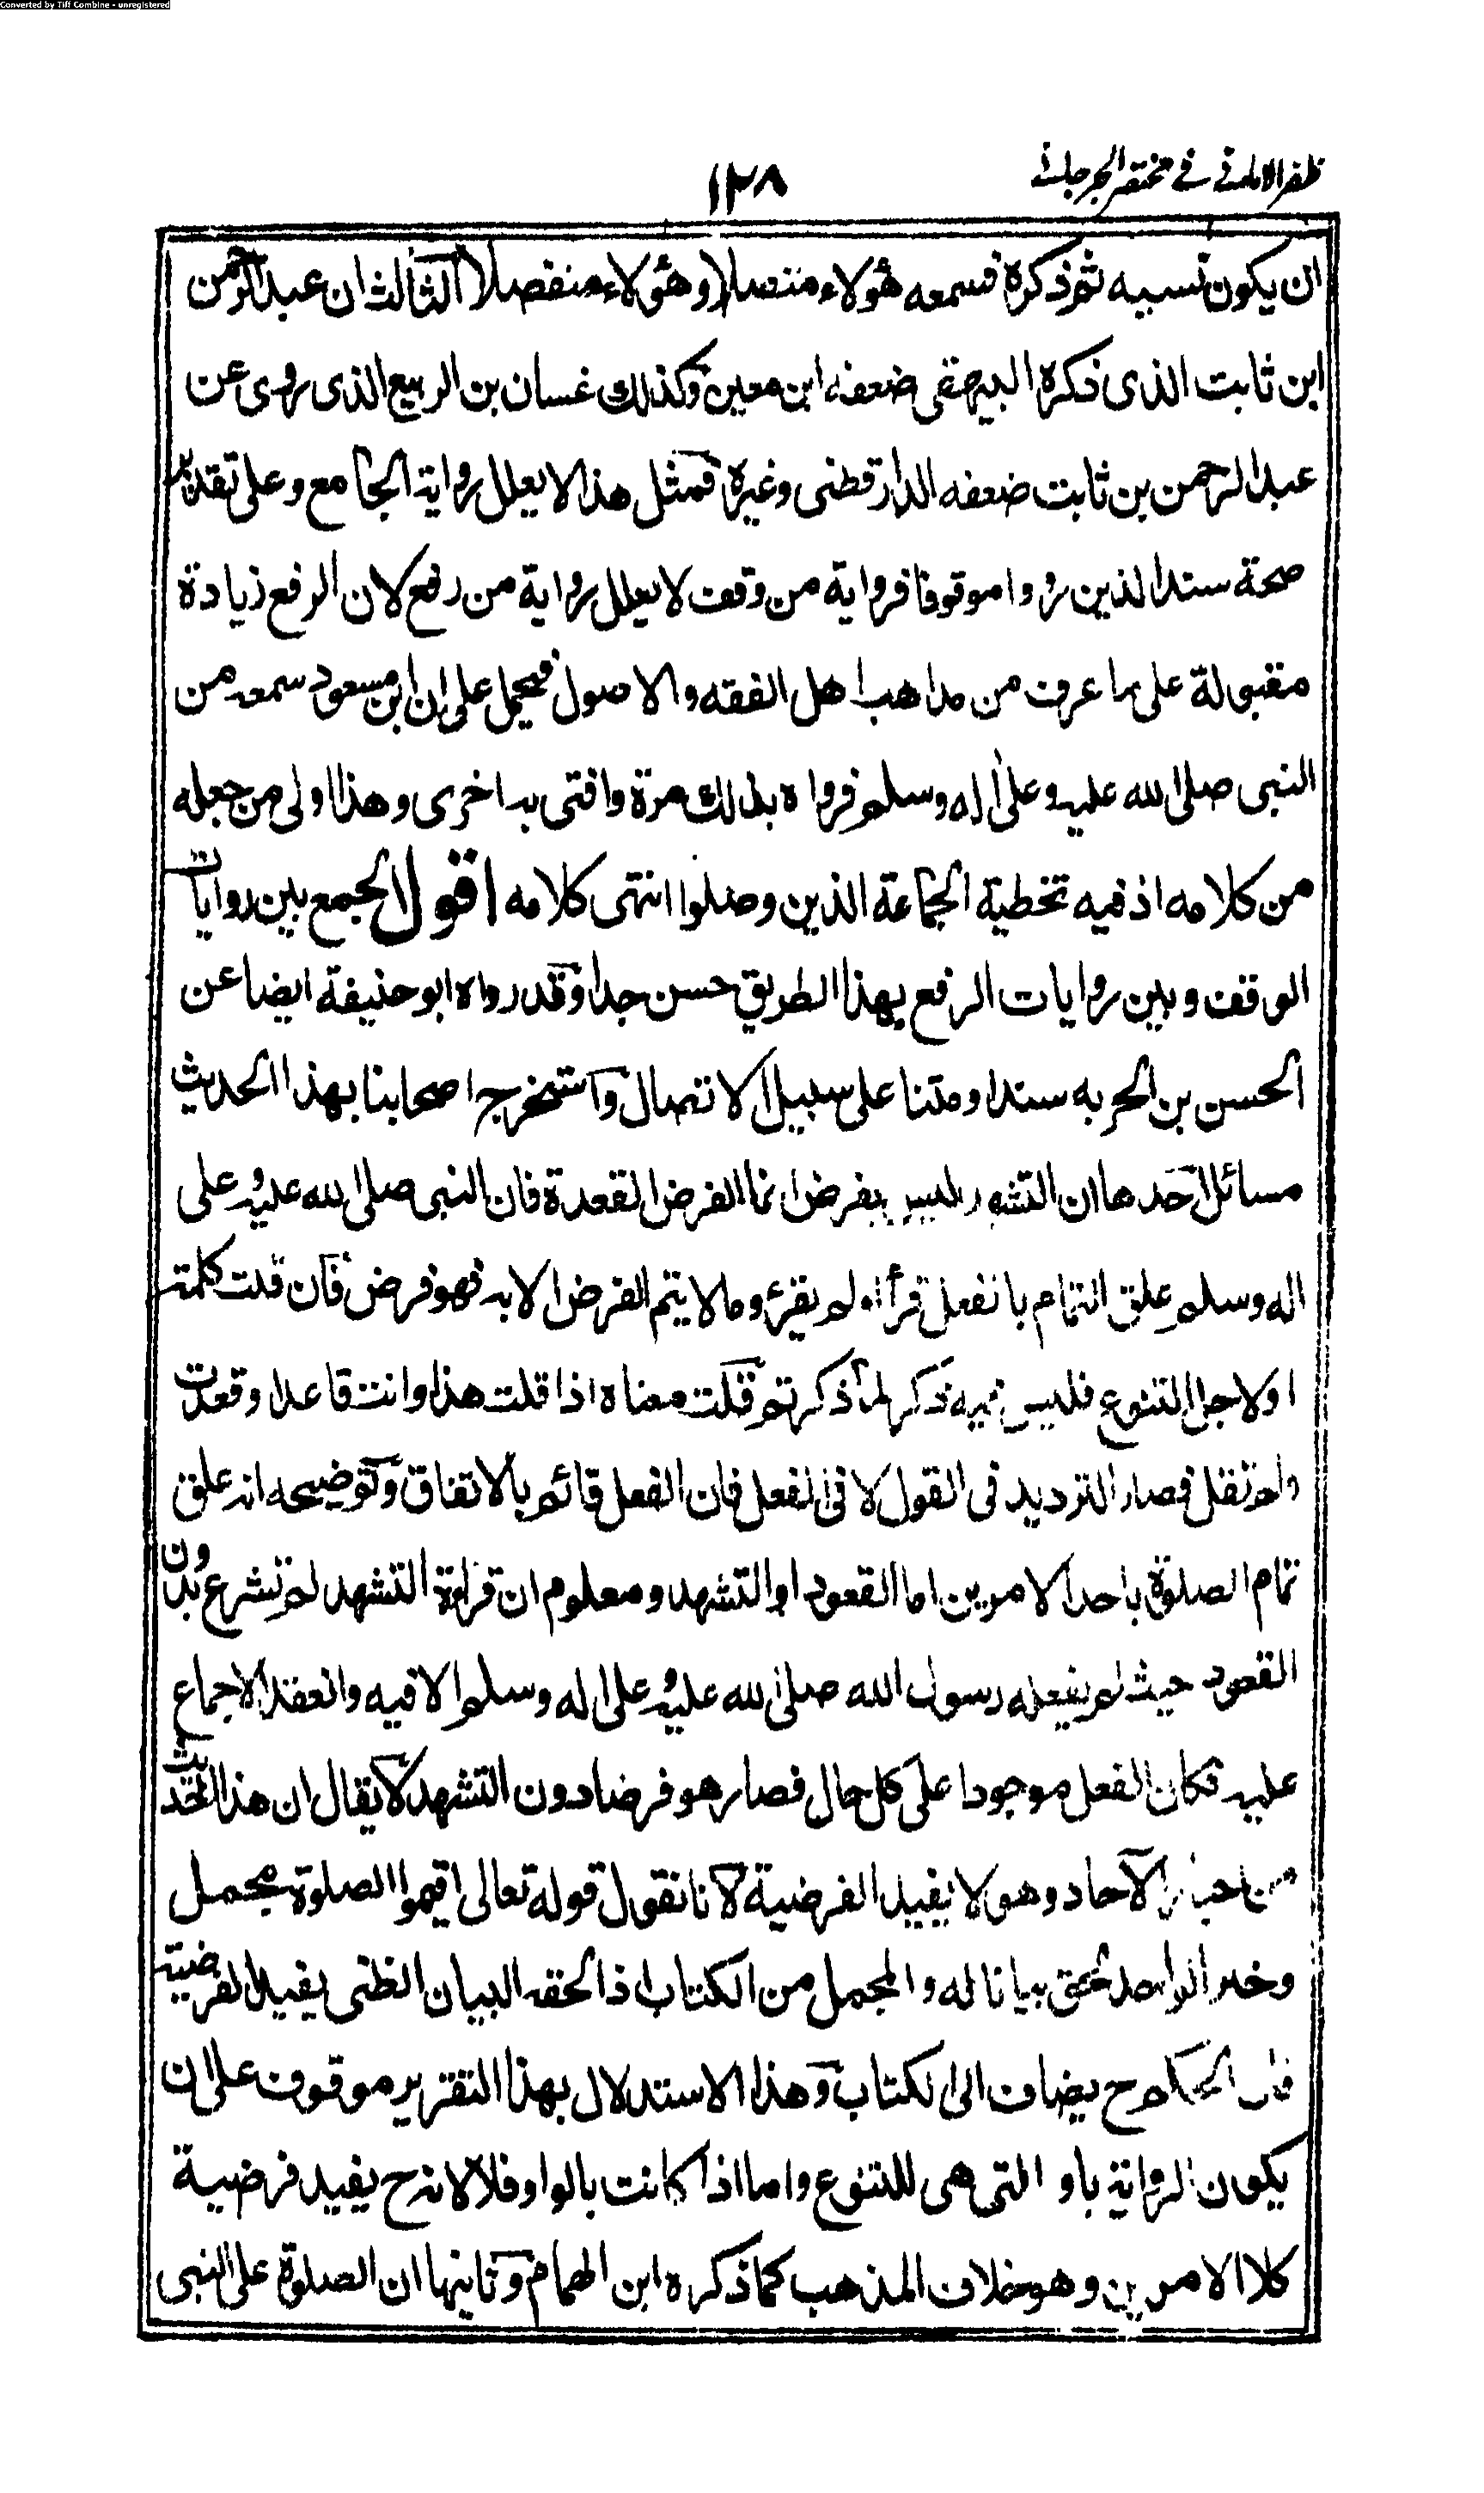 Converted by Tiff Combine - unregistered
ظفر الامانی فی مختصر الجرجانی
۱۲۸
ان يكون نسيه ثم ذكره فسمعه هؤلاء متصلا وهؤلاء منفصلا الثالث ان عبد الرحمن
ابن ثابت الذى ذكره البيهقى ضعفه ابن معين وكذلك غسان بن الربيع الذى روى عن
عبد الرحمن بن ثابت ضعفه الدارقطنى وغيره فمثل هذا لا يعلل رواية الجامع وعلى تقدير
صحة سند الذين رووا موقوفا فرواية من وقف لا يعلل رواية من رفع لان الرفع زيادة
مقبولة على ما عرف من مذاهب اهل الفقه والاصول فيحمل على ان ابن مسعود سمعه من
النبى صلى الله عليه وعلى اله وسلم فرواه بذلك مرة وافتى به اخرى وهذا اولى من جعله
من كلامه اذ فيه تخطية الجماعة الذين وصلوا انتهى كلامه اقول الجمع بين روايات
الوقف وبين روايات الرفع بهذا الطريق حسن جدا وقد رواه ابو حنيفة ايضا عن
الحسن بن الحر به سندا ومتنا على سبيل الاتصال واستخرج اصحابنا بهذا الحديث
مسائل احدها ان التشهد ليس بفرض انما الفرض القعدة فان النبى صلى الله عليه وعلى
اله وسلم علق التمام بالفعل قرأ او لم يقرء وما لا يتم الفرض الا به فهو فرض فان قلت كلمة
او لاجل التنوع فليس فيه ذكر لما ذكرتم قلت معناه اذا قلت هذا وانت قاعد او قعدت
ولم تقل فصار الترديد فى القول لا فى الفعل فان الفعل قائم بالاتفاق وتوضيحه انه علق
تمام الصلوة باحد الامرين اما القعود او التشهد ومعلوم ان قراءة التشهد لم تشرع بدون
القعود حيث لم يفعله رسول الله صلى الله عليه وعلى اله وسلم الا فيه وانعقد الاجماع
عليه فكان الفعل موجودا على كل حال فصار هو فرضا دون التشهد لا يقال ان هذا الحديث
من اخبار الآحاد وهو لا يفيد الفرضية لانا نقول قوله تعالى اقيموا الصلوة مجمل
وخبر الواحد لحق بيانا له والمجمل من الكتاب اذا لحقه البيان الظنى يفيد الفرضية
فان الحكم ح يضاف الى الكتاب وهذا الاستدلال بهذا التقرير موقوف على ان
يكون الرواية باو التى هى للتنوع واما اذا كانت بالواو فلا لانه ح يفيد فرضية
كلا الامرين وهو خلاف المذهب كما ذكره ابن الهمام وثانيها ان الصلوة على النبى